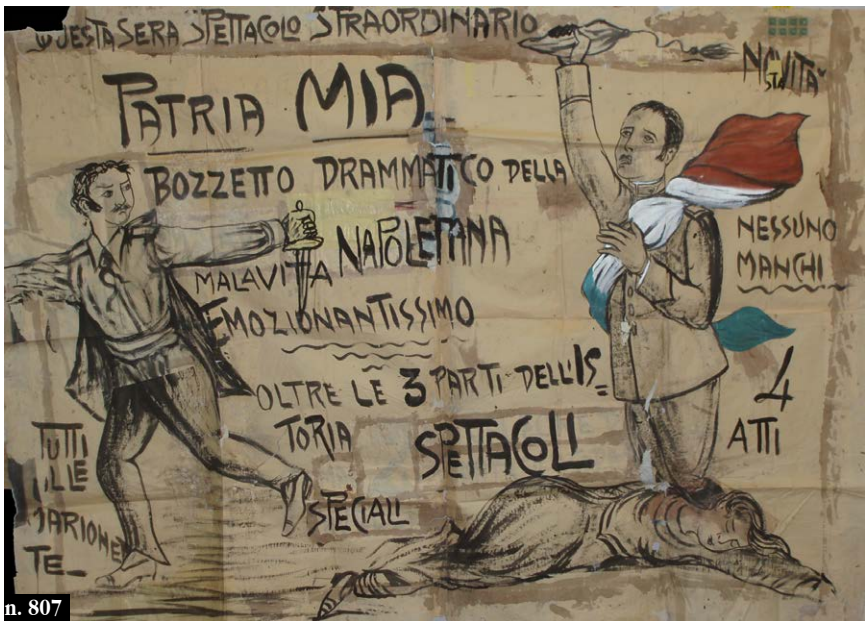 QUESTA SERA SPETTACOLO STRAORDINARIO
NOVITÀ
PATRIA MIA
BOZZETTO DRAMMATICO DELLA
MALAVITA NAPOLETANA
EMOZIONANTISSIMO
NESSUNO
MANCHI
OLTRE LE 3 PARTI DELL'IS=
TORIA SPETTACOLI
SPECIALI
4
ATTI
TUTTI
ALLE
MARIONET
TE
n. 807